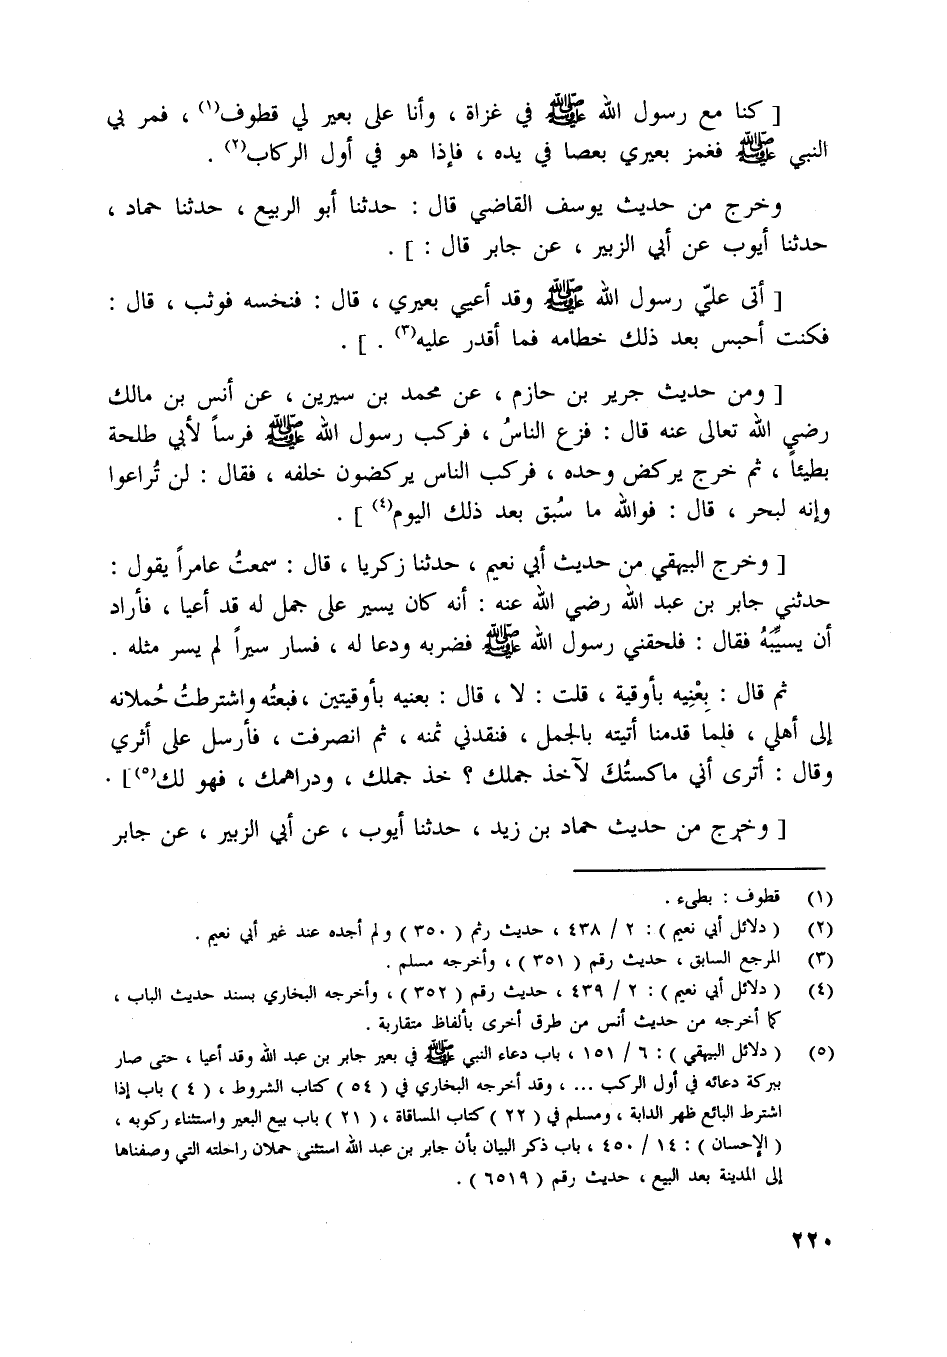 [ كنا مع رسول الله ﷺ في غزاة ، وأنا على بعير لي قطوف(١) ، فمر بي
النبي ﷺ فغمز بعيري بعصا في يده ، فإذا هو في أول الركاب(٢) .
وخرج من حديث يوسف القاضي قال : حدثنا أبو الربيع ، حدثنا حماد ،
حدثنا أيوب عن أبي الزبير ، عن جابر قال : ] .
[ أتى عليّ رسول الله ﷺ وقد أعيي بعيري ، قال : فنخسه فوثب ، قال :
فكنت أحبس بعد ذلك خطامه فما أقدر عليه(٣) . ] .
[ ومن حديث جرير بن حازم ، عن محمد بن سيرين ، عن أنس بن مالك
رضي الله تعالى عنه قال : فزع الناسُ ، فركب رسول الله ﷺ فرساً لأبي طلحة
بطيئاً ، ثم خرج يركض وحده ، فركب الناس يركضون خلفه ، فقال : لن تُراعوا
وإنه لبحر ، قال : فوالله ما سُبق بعد ذلك اليوم(٤) ] .
[ وخرج البيهقي من حديث أبي نعيم ، حدثنا زكريا ، قال : سمعتُ عامراً يقول :
حدثني جابر بن عبد الله رضي الله عنه : أنه كان يسير على جمل له قد أعيا ، فأراد
أن يسيِّبَهُ فقال : فلحقني رسول الله ﷺ فضربه ودعا له ، فسار سيراً لم يسر مثله .
ثم قال : بِعْنِيه بأوقية ، قلت : لا ، قال : بعنيه بأوقيتين ، فبعتُه واشترطتُ حُملانه
إلى أهلي ، فلما قدمنا أتيته بالجمل ، فنقدني ثمنه ، ثم انصرفت ، فأرسل على أثري
وقال : أترى أني ماكستُكَ لآخذ جملك ؟ خذ جملك ، ودراهمك ، فهو لك(٥) ] .
[ وخرج من حديث حماد بن زيد ، حدثنا أيوب ، عن أبي الزبير ، عن جابر
(١) قطوف : بطيء .
(٢) ( دلائل أبي نعيم ) : ٢ / ٤٣٨ ، حديث رثم ( ٣٥٠ ) ولم أجده عند غير أبي نعيم .
(٣) المرجع السابق ، حديث رقم ( ٣٥١ ) ، وأخرجه مسلم .
(٤) ( دلائل أبي نعيم ) : ٢ / ٤٣٩ ، حديث رقم ( ٣٥٢ ) ، وأخرجه البخاري بسند حديث الباب ،
كما أخرجه من حديث أنس من طرق أخرى بألفاظ متقاربة .
(٥) ( دلائل البيهقي ) : ٦ / ١٥١ ، باب دعاء النبي ﷺ في بعير جابر بن عبد الله وقد أعيا ، حتى صار
ببركة دعائه في أول الركب ... ، وقد أخرجه البخاري في ( ٥٤ ) كتاب الشروط ، ( ٤ ) باب إذا
اشترط البائع ظهر الدابة ، ومسلم في ( ٢٢ ) كتاب المساقاة ، ( ٢١ ) باب بيع البعير واستثناء ركوبه ،
( الإحسان ) : ١٤ / ٤٥٠ ، باب ذكر البيان بأن جابر بن عبد الله استثنى حملان راحلته التي وصفناها
إلى المدينة بعد البيع ، حديث رقم ( ٦٥١٩ ) .
٢٢٠